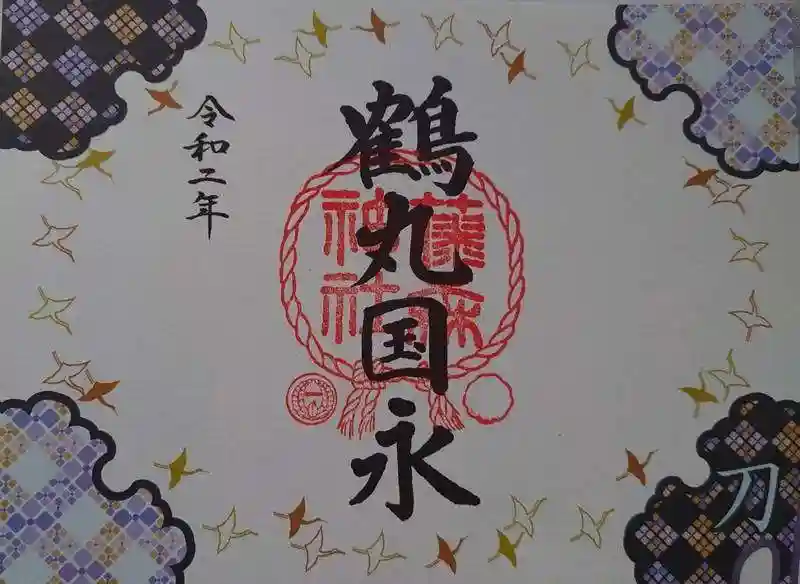 鶴丸国永
令和二年
藤森
神社
一
刀